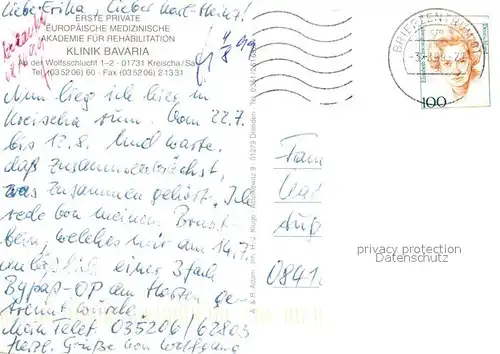 Liebe Erika, Lieber Karl-Heinz!
ERSTE PRIVATE
EUROPÄISCHE MEDIZINISCHE
AKADEMIE FÜR REHABILITATION
KLINIK BAVARIA
An der Wolfsschlucht 1-2 - 01731 Kreischa/Sa
Tel. (035206) 60 - Fax (035206) 21331
Nun lieg ich hier in
Kreischa rum. Vom 22.7.
bis 12.8. Und warte,
daß zusammenwächst,
was zusammen gehört. Ich
rede von meinem Brust-
bein, welches mir am 14.7.
anläßlich einer 3fach
Bypaß-OP am Herzen ge-
trennt wurde.
Mein Telef 035206/62803
Herzl. Grüße von Wolfgang
BRIEFZENTRUM 01
100
Fam
0841
privacy protection
Datenschutz